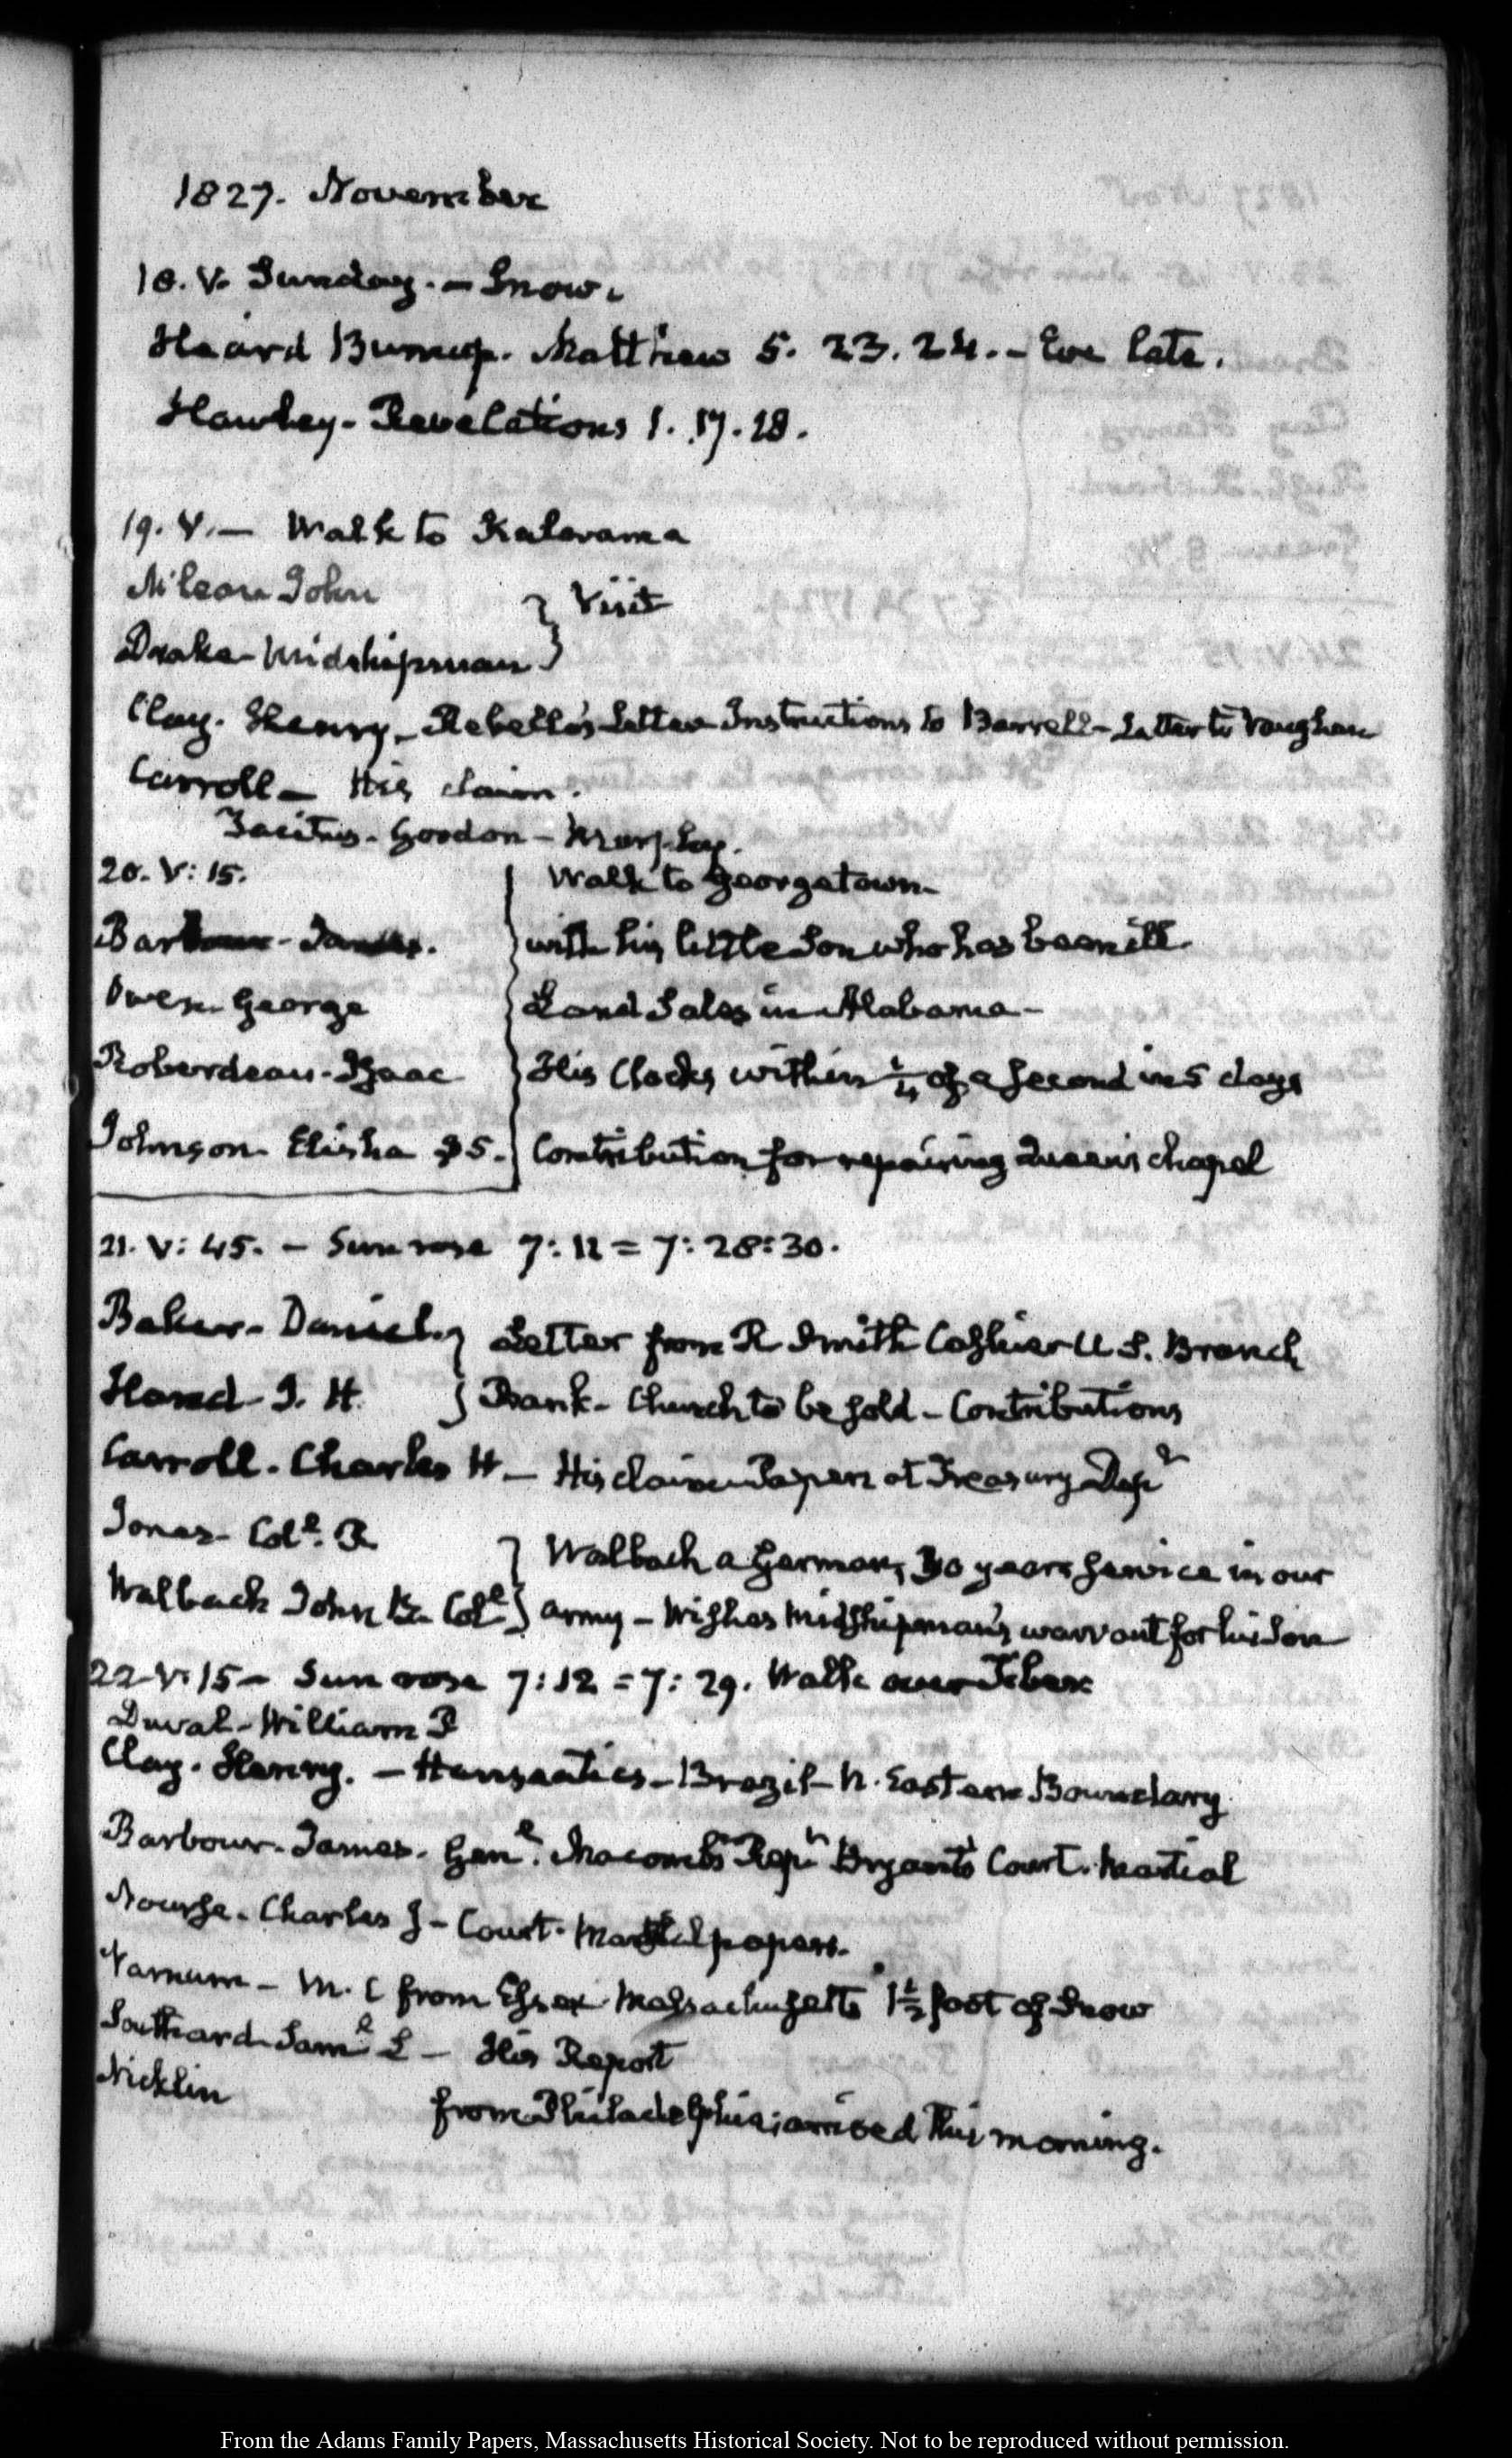 1827. November
18. V. Sunday. – Snow.
Heard Burnup. Matthew 5. 23. 24. – Eve late.
Hawley – Revelations 1. 17. 18.
19. V. – Walk to Kalorama
McLean John } Visit
Drake – Midshipman
Clay. Henry – Rebello's Letter Instructions to Barrell – Letter to Vaughan
Carroll – His claim.
Tacitus – Gordon – Murphy.
20. V: 15. Walk to Georgetown –
Barbour – James. with his little Son who has been ill.
Owen George Land Sales in Alabama –
Roberdeau – Isaac His Clocks within 1/4 of a Second in 5 days
Johnson – Elisha $5. Contribution for repairing Queen's chapel
21. V: 45. – Sun rose 7:12 = 7:28:30.
Baker – Daniel } Letter from R Smith Cashier U. S. Branch
Hand – J. H. } Bank – Church to be sold – Contributions
Carroll. Charles H – His claim Papers at Treasury Dept
Jones – Coll. R } Walbach a German, 30 years service in our
Walbach John B. Coll } army – Wishes Midshipman's warrant for his Son
22 V: 15 – Sun rose 7:12 = 7:29. Walk over Tiber
Duval – William P
Clay. Henry. – Hanseatics – Brazil – N. Eastern Boundary
Barbour – James – Genl. Macomb's Bryant's Court. Martial
Nourse. Charles J – Court. Martial papers.
Varnum – M. C from Essex Massachusetts 1 1/2 foot of Snow
Southard Saml L – His Report
Nicklin from Philadelphia; arrived this morning.
From the Adams Family Papers, Massachusetts Historical Society. Not to be reproduced without permission.